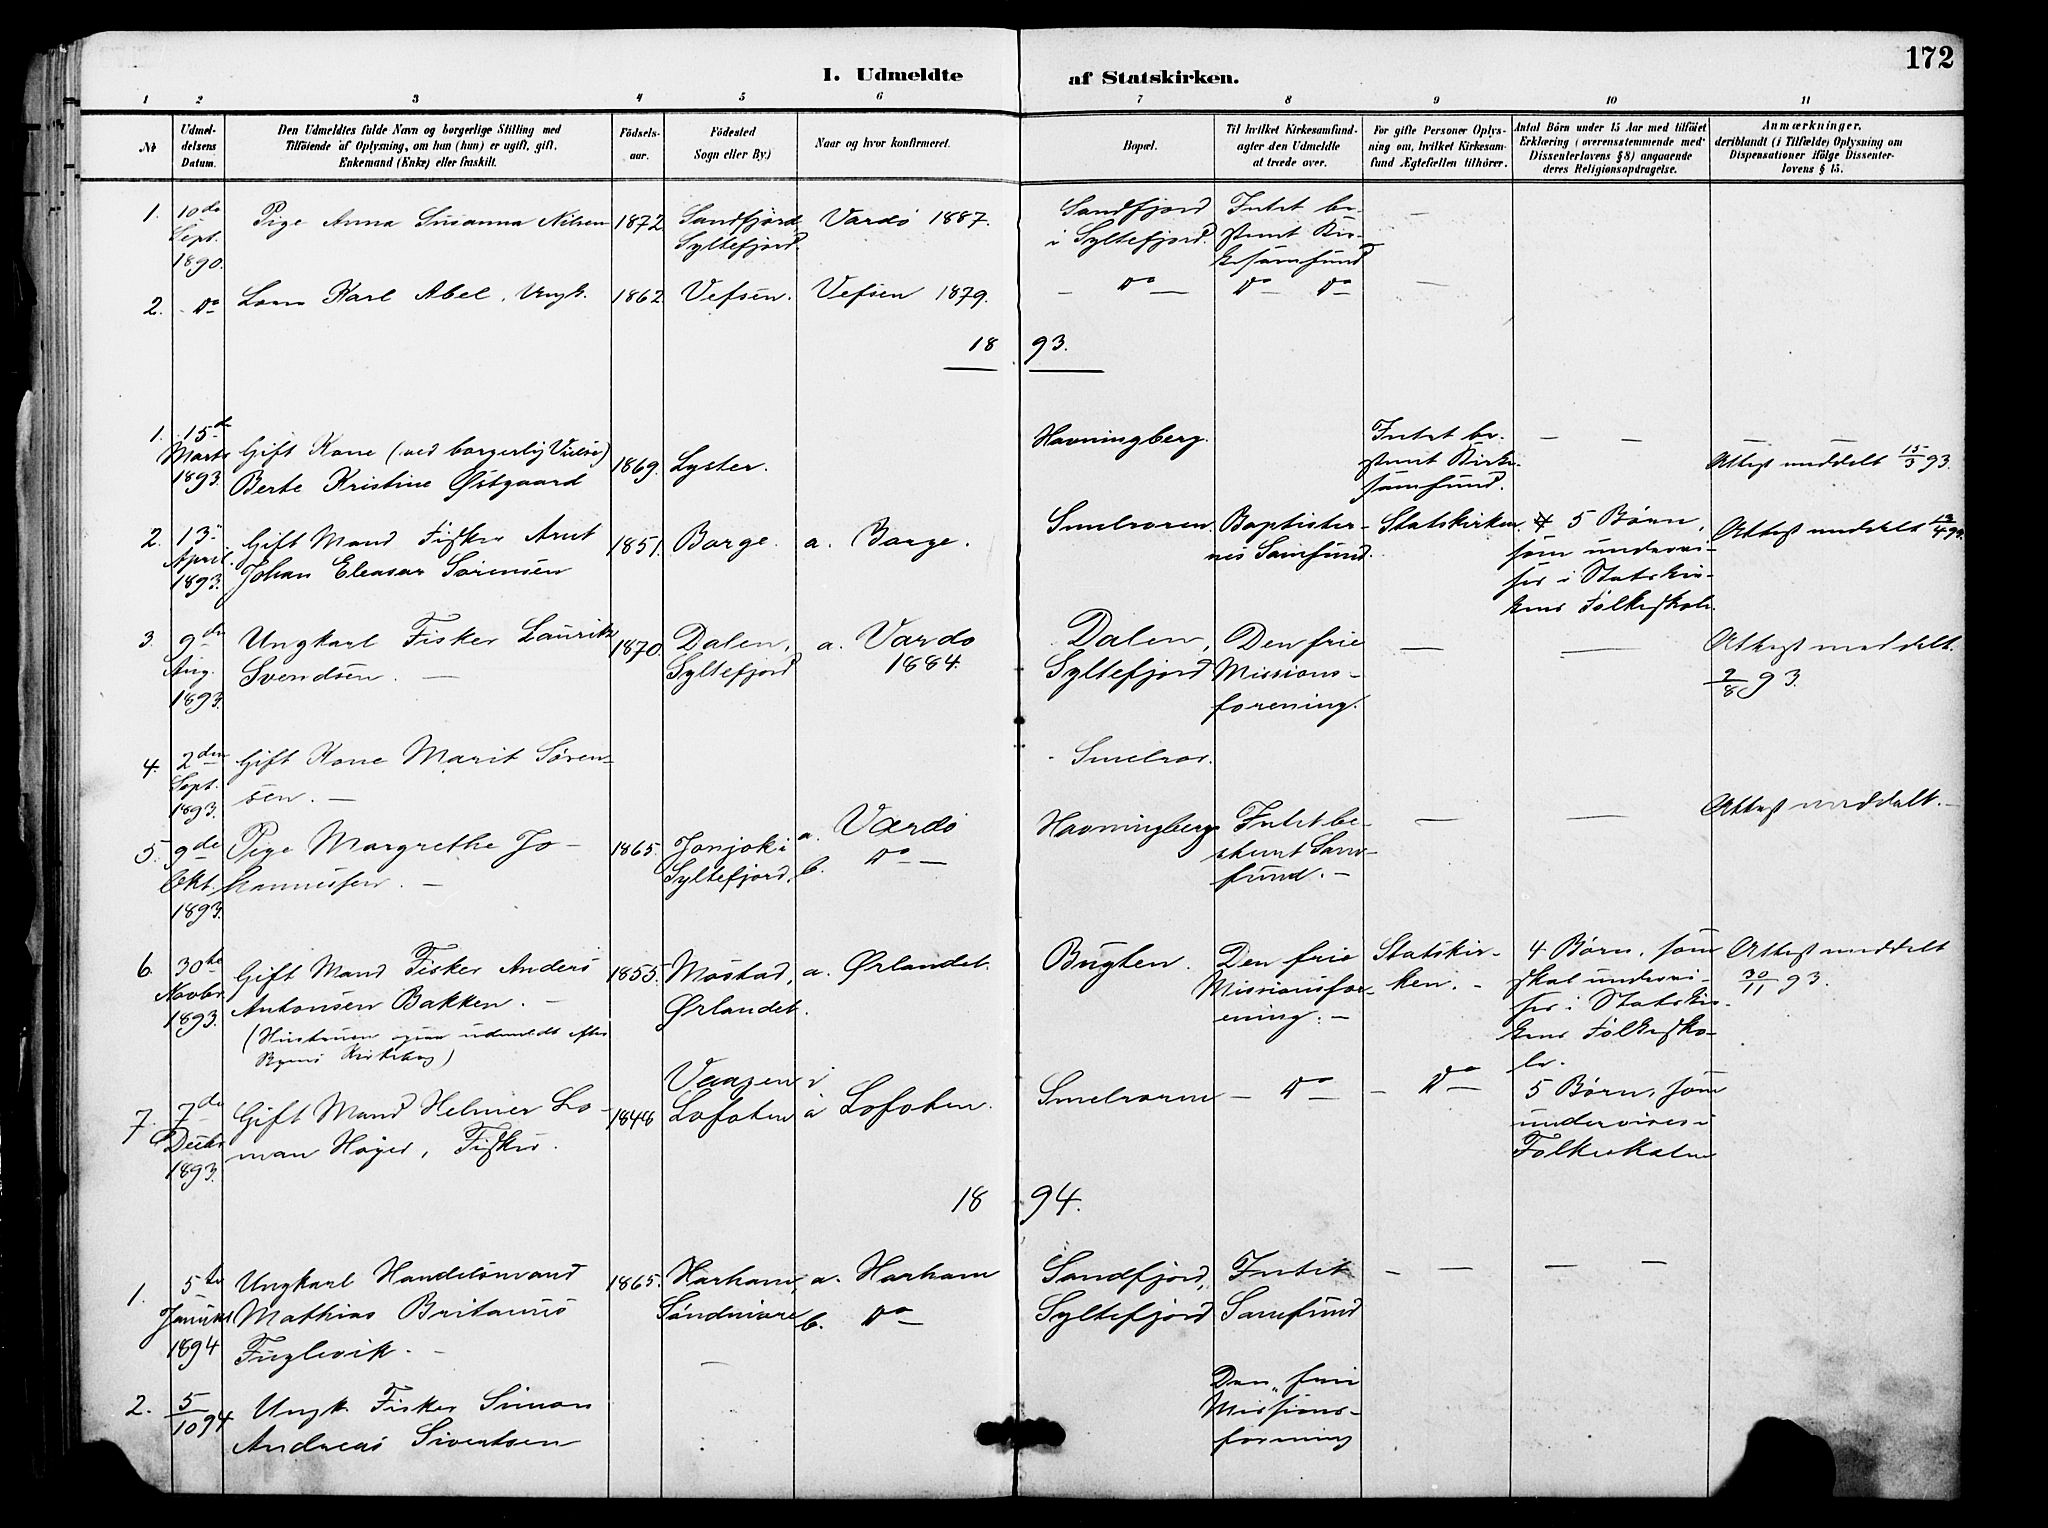 172
I. Udmeldte af Statskirken.
1 2 3 4 5 6 7 8 9 10 11
No
Udmeldelsens Datum.
Den Udmeldtes fulde Navn og borgerlige Stilling med
Tilföiende af Oplysning, om han (hun) er ugift, gift,
Enkemand (Enke) eller fraskilt.
Födsels-
aar.
Födested
Sogn eller By.)
Naar og hvor konfirmeret.
Bopæl.
Til hvilket Kirkesamfund-
agter den Udmeldte
at træde over.
For gifte Personer Oplys-
ning om, hvilket Kirkesam-
fund Ægtefællen tilhörer.
Antal Börn under 15 Aar med tilföiet
Erklæring (overensstemmende med
Dissenterlovens § 8) angaaende
deres Religionsopdragelse.
Anmærkninger,
deriblandt (i Tilfælde) Oplysning om
Dispensationer ifölge Dissenter-
lovens § 15.
1. 10de Sept. 1890. Pige Anna Susanna Nilsen 1872 Sandfjord Syltefjord. Vardö 1887. Sandfjord i Syltefjord. Intet be- stemt Kir- kesamfund —
2. Do Karl Abel, Ungk. 1862. Vefsen. Vefsen 1879. — Do — Do Do —
18 93.
1. 15de Marts 1893. Gift Kone (ved borgerlig Vielse) Berte Kristine Østgaard 1869. Lyster. Havningberg. Intet be- stemt Kirke- samfund. — — — — Attest meddelt 15/3 93.
2. 13. April 1893. Gift Mand Fisker Arnt Johan Eleasar Sørensen 1851. Borge. a. Borge. Smelroren. Baptister- nes Samfund. Statskirken. 5 Børn, som undervi- ses i Statskir- kens Folkeskole. Attest meddelt 13/4 93.
3. 9de Aug. 1893. Ungkarl Fisker Laurits Svendsen. — 1870. Dalen, Syltefjord a. Vardö 1884. Dalen, Syltefjord Den frie Missions- forening. — — Attest meddelt. 9/8 93.
4. 2den Sept. 1893. Gift Kone Marit Søren- sen. — Smelror.
5. 9de Okt. 1893. Pige Margrethe Jo- hannessen. — 1865. Jonjok i Syltefjord. a. Vardö b. Do — Havningberg Intet be- stemt Sam- fund. — — — Attest meddelt. —
6. 30te Novbr. 1893. Gift Mand Fisker Anders Antonsen Bakken. — 1855. Mostad, Ørlandet. a. Ørlandet. Bugten. Den frie Missionsfor- ening. — Statskir- ken. — 4 Børn, som skal undervi- ses i Statskir- kens Folkesko- le. Attest meddelt 30/11 93.
(Hustruen ogsaa udmeldt efter Byens Kirkebog)
7. 7de Decbr 1893. Gift Mand Helmer Lo- man Høyer, Fisker. 1848 Vaagen i Lofoten a Lofoten. Smelroren — Do — Do — 5 Børn, som undervises i Folkeskolen
18 94.
1. 5te Januar 1894 Ungkarl Handelsmand Mathias Britanus Fuglevik. — 1865. Harham, Søndmøre a. Harham b. Do — Sandfjord, Syltefjord Intet Samfund — — — —
2. 5/10 94 Ungk. Fisker Simon Andreas Sivertsen — Den frie Missions- forening